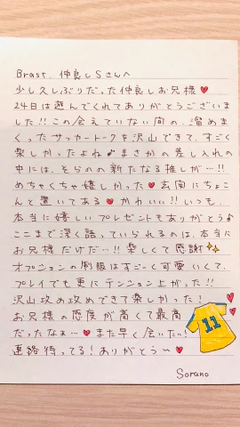 Brast. 仲良しSさんへ
少し久しぶりだった仲良しお兄様♥
24日は遊んでくれてありがとうございま
した!!この会えていない間の、溜めま
くったサッカートークを沢山できて、すごく
楽しかったよね♪まさかの差し入れの
中には、そらのの新たなる推しが…!!
めちゃくちゃ嬉しかった♥玄関にちょこ
んと置いてある♥かわいい!!いつも、
本当に嬉しいプレゼントもありがとう♪
ここまで深く語っていられるのは、本当に
お兄様だけだ…!!楽しくて感謝✨
オプションの制服はすごーく可愛いくて、
プレイでも更にテンション上がった!!
沢山攻め攻めできて楽しかった!
お兄様の感度が高くて最高
だったなぁ〜♥また早く会いたい!
連絡待ってる!ありがとう〜♥
11
Sorano